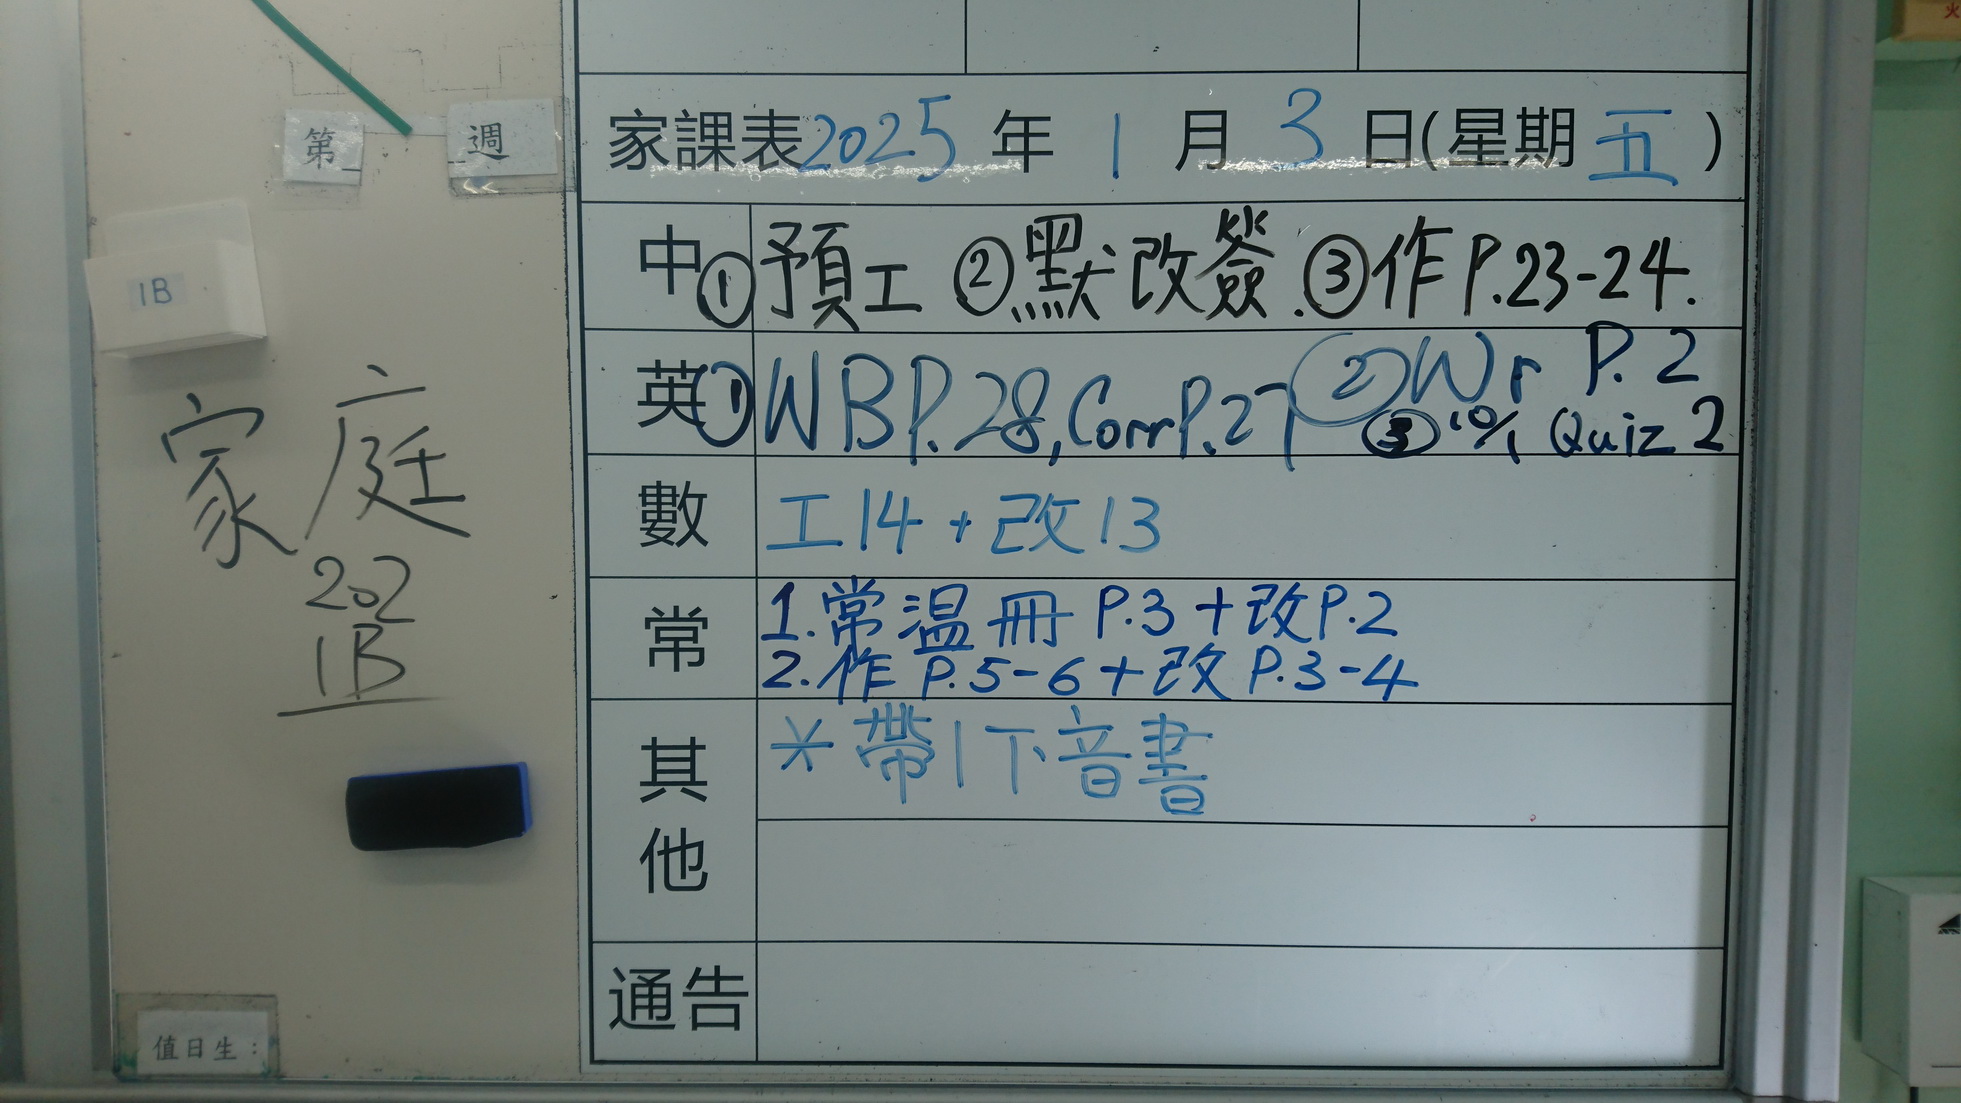 第 週
家課表 2025 年 1 月 3 日(星期 五 )
1B
中 ①預工 ②默改簽. ③作P.23-24.
英 ①WB P.28, Corr P.27 ②Wr P.2
③10/1 Quiz 2
數 工14+改13
常 1.常溫冊 P.3+改P.2
2.作 P.5-6+改 P.3-4
其他 *帶1下音書
通告
家庭
202
1B
值日生:
火